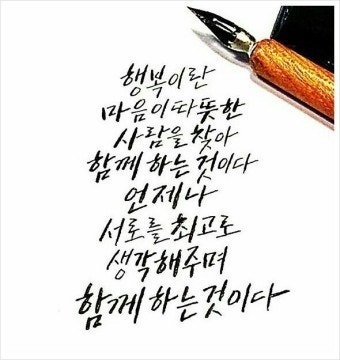 행복이란
마음이 따뜻한
사람을 찾아
함께 하는 것이다
언제나
서로를 최고로
생각해주며
함께 하는것이다